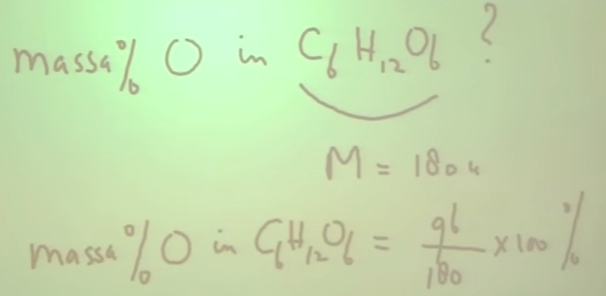 massa% O in C₆H₁₂O₆ ?
M = 180 u
massa% O in C₆H₁₂O₆ = 96/180 x 100%